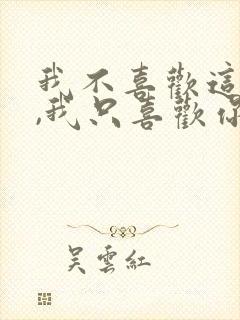 我不喜歡這
,我只喜歡你
吳雲紅